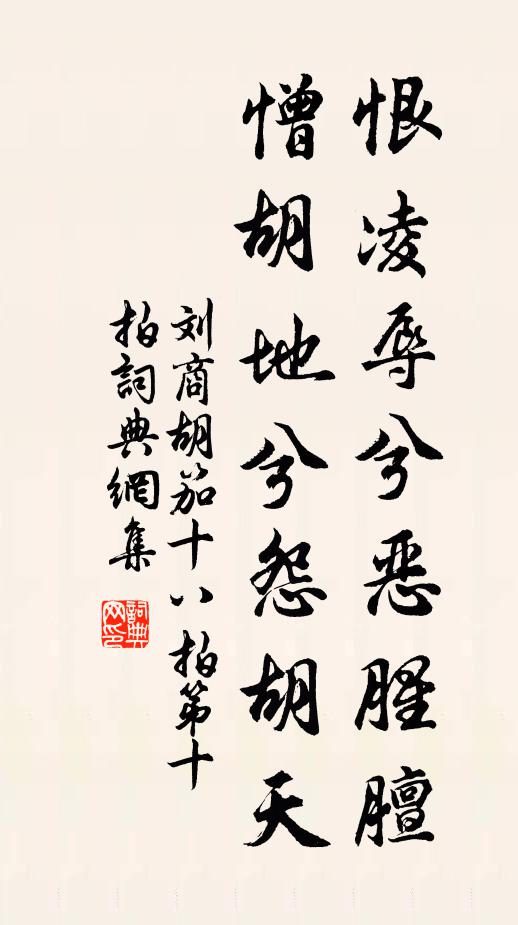 恨凌辱兮恶腥膻
憎胡地兮怨胡天
刘商胡笳十八拍第十
拍詞典網集
詞典网印